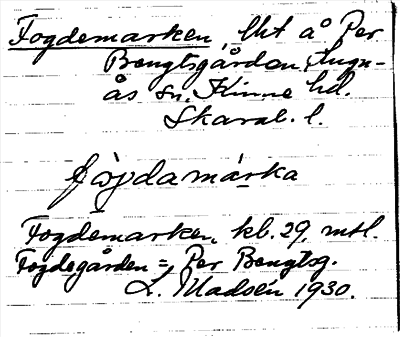 Fogdemarken, lht å Per
Bengtsgården, Lugn-
ås sn, Kinne hd.
Skarab. l.
fògdamárka
Fogdemarken, kb. 29, mtl.
Fogdegården =, Per Bengtsg.
L. Madsén 1930.